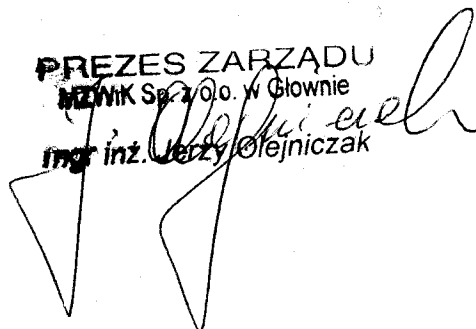 PREZES ZARZĄDU
MZWiK Sp. z o.o. w Głownie
mgr inż. Jerzy Olejniczak